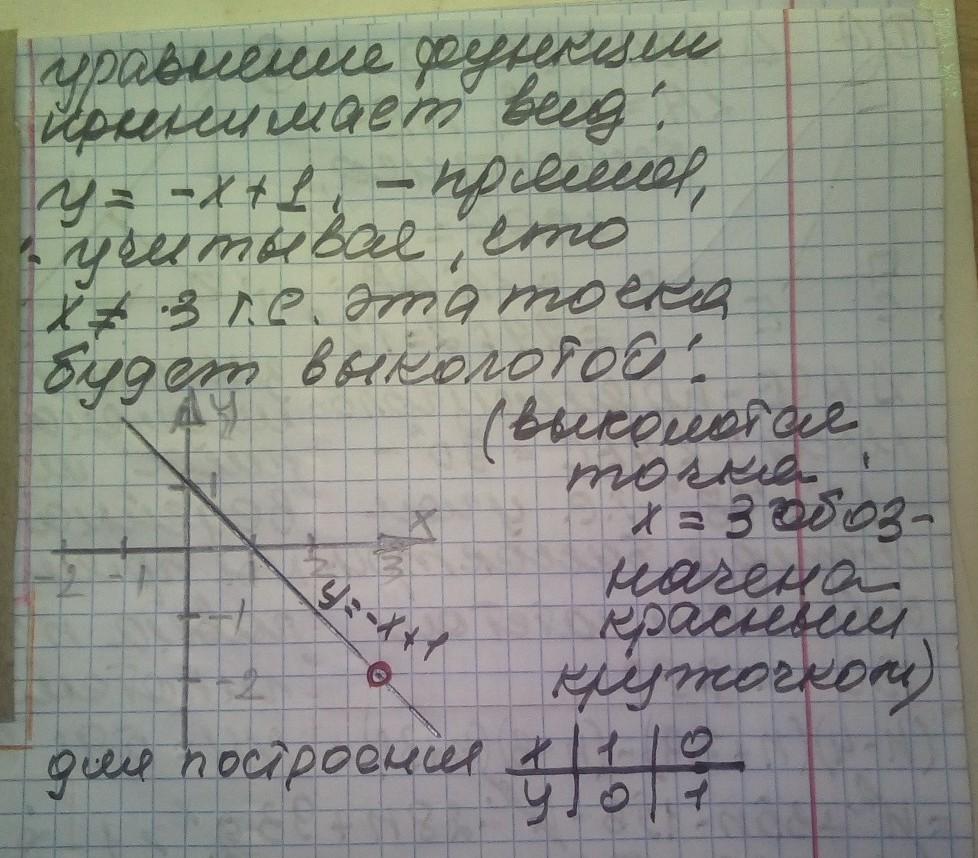 уравнение функции
принимает вид:
y = -x+1. - прямая,
учитывая, что
x ≠ 3 т.е. эта точка
будет выколотой:
y
(выколотая
точка
1
x = 3 обоз-
x
-2 -1 1 2 3
начена
y=-x+1
красным
-1
кружочком)
-2
для построения x | 1 | 0
y | 0 | 1